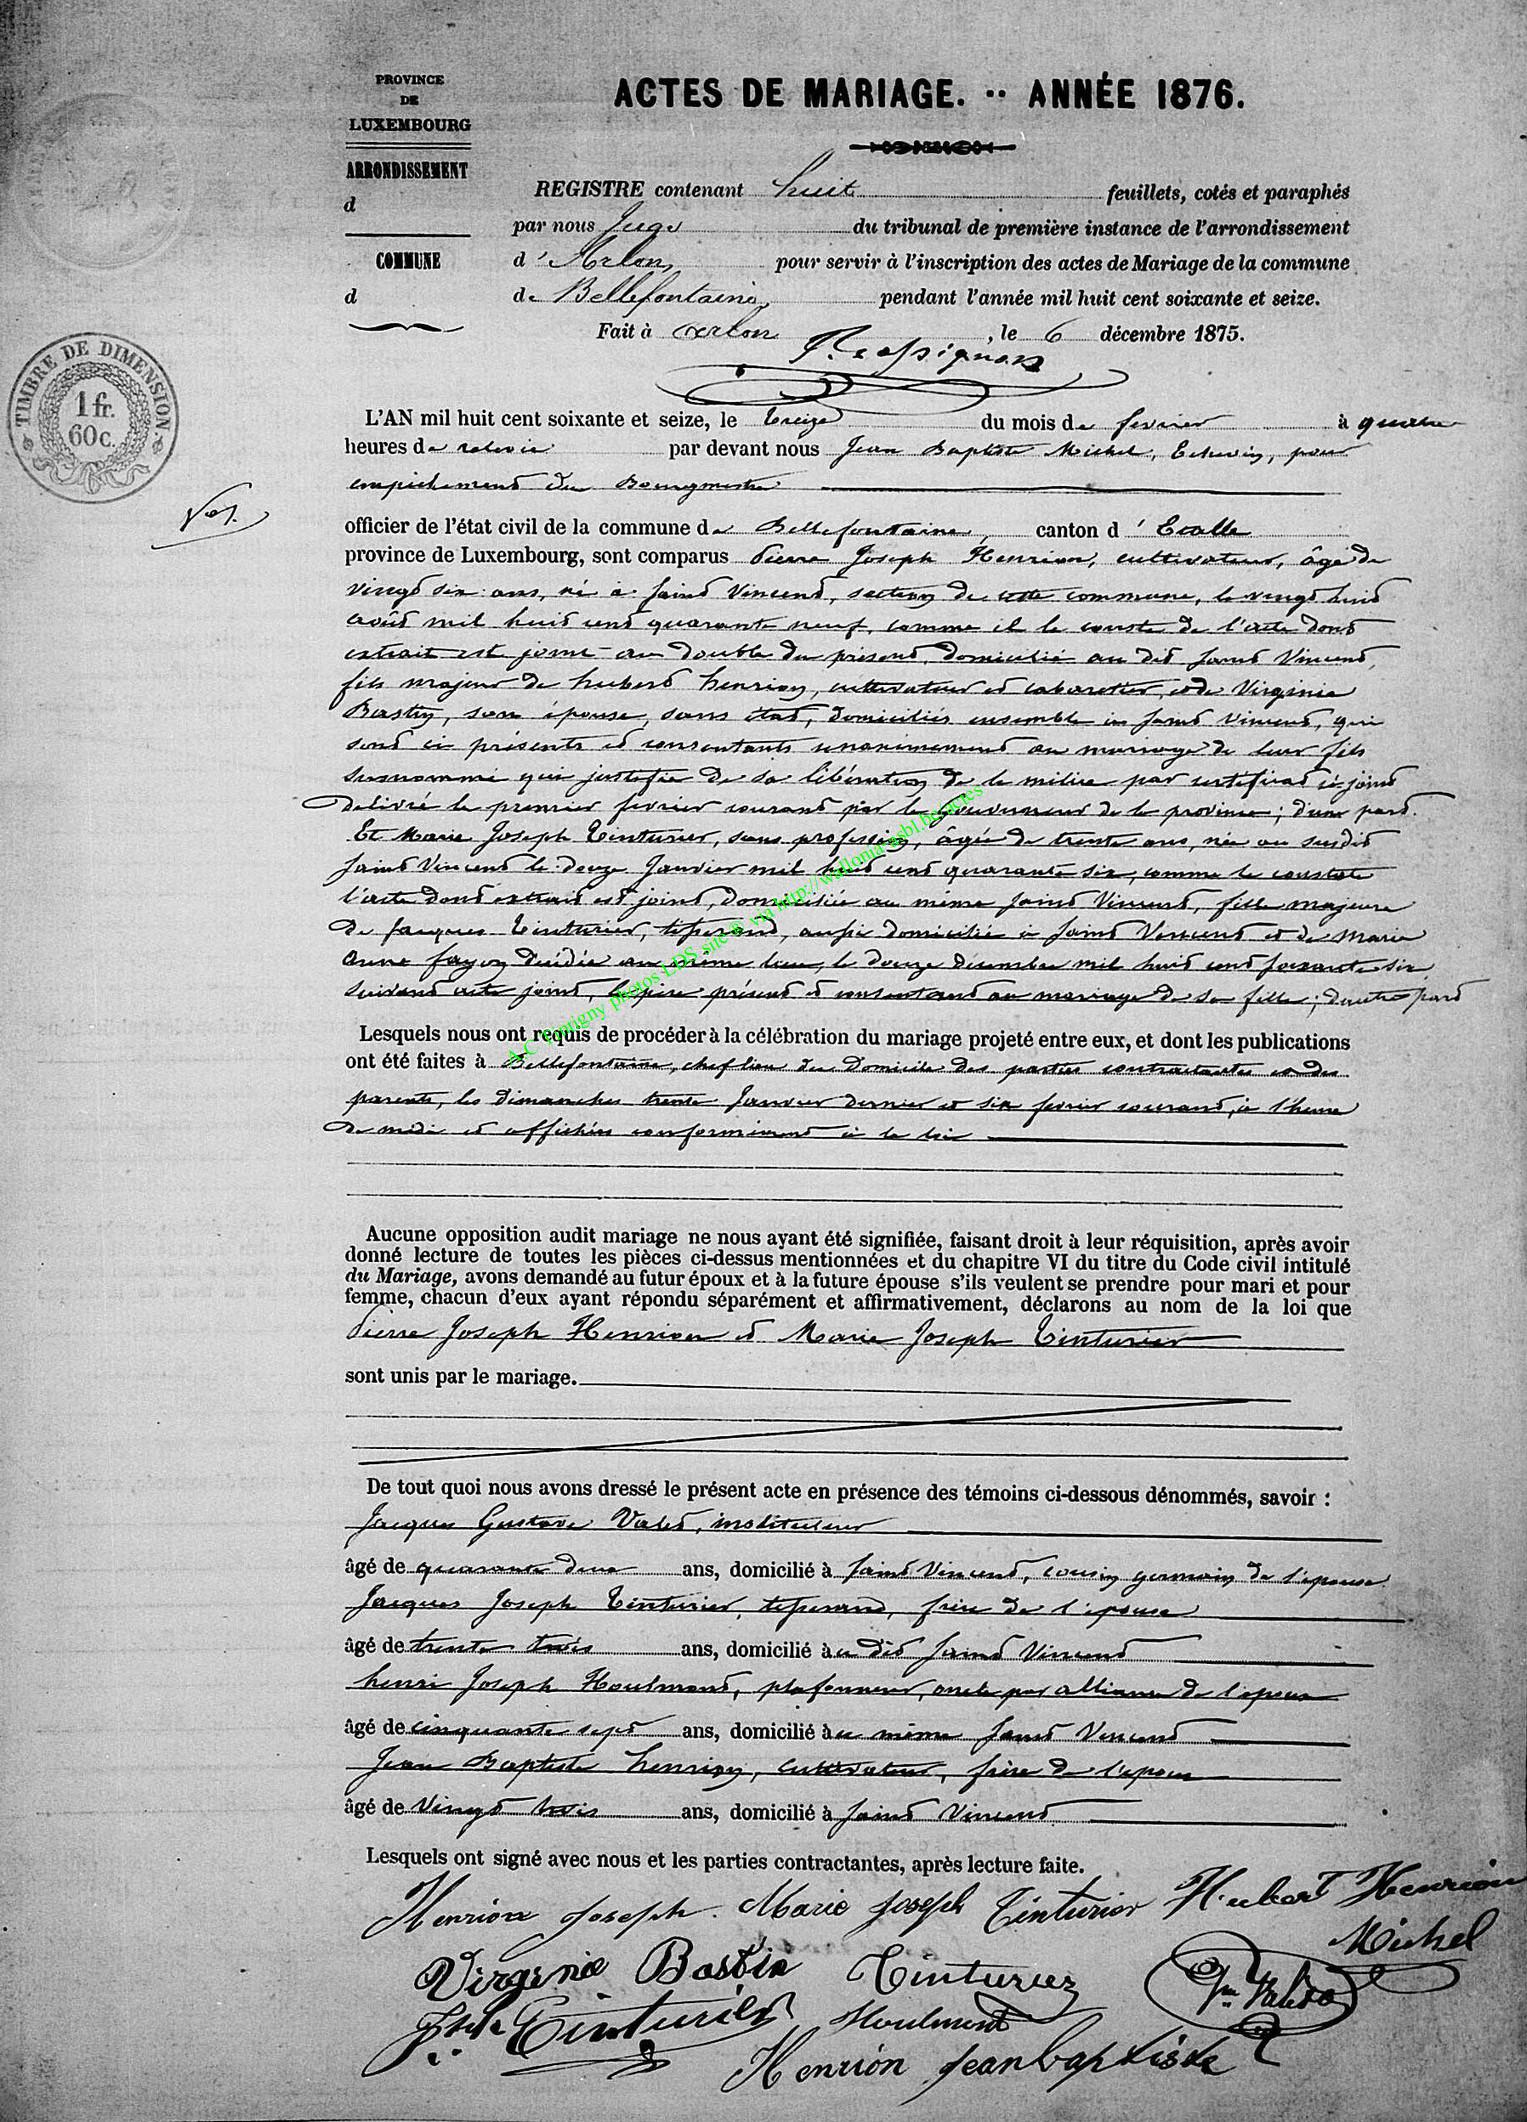 PROVINCE
DE
LUXEMBOURG
ARRONDISSEMENT
d
COMMUNE
d
ACTES DE MARIAGE. -- ANNÉE 1876.
REGISTRE contenant huit feuillets, cotés et paraphés
par nous Juge du tribunal de première instance de l'arrondissement
d'Arlon, pour servir à l'inscription des actes de Mariage de la commune
de Bellefontaine, pendant l'année mil huit cent soixante et seize.
Fait à Arlon, le 6 décembre 1875.
TIMBRE DE DIMENSION
1 fr.
60 c.
L'AN mil huit cent soixante et seize, le treize du mois de fevrier à quatre
heures de relevée par devant nous Jean Baptiste Michel, Echevin, pour
empêchement du Bourgmestre
officier de l'état civil de la commune de Bellefontaine, canton d'Etalle
province de Luxembourg, sont comparus Pierre Joseph Henrion, cultivateur, âgé de
vingt six ans, né à Saint Vincent, section de cette commune, le vingt huit
août mil huit cent quarante neuf, comme il le conste de l'acte dont
extrait est joint au double du présent, domicilié au dit Saint Vincent,
fils majeur de hubert henrion, cultivateur et cabaretier, et de Virginie
Bastin, son épouse, sans état, domiciliés ensemble à Saint Vincent, qui
sont ci présents et consentants unanimement au mariage de leur fils
susnommé qui justifie de sa libération de la milice par certificat ci-joint
delivré le premier fevrier courant par le gouverneur de la province; d'une part.
Et Marie Joseph Tinturier, sans profession, âgée de trente ans, née au susdit
Saint Vincent le douze Janvier mil huit cent quarante six, comme le constate
l'acte dont extrait est joint, domiciliée au même Saint Vincent, fille majeure
de Jacques Tinturier, tisserand, aussi domicilié à Saint Vincent et de Marie
anne fayon décédée au même lieu, le douze décembre mil huit cent soixante six,
suivant acte joint, le père présent et consentant au mariage de sa fille; d'autre part
Lesquels nous ont requis de procéder à la célébration du mariage projeté entre eux, et dont les publications
ont été faites à Bellefontaine, chef lieu du domicile des parties contractantes et des
parents, les dimanches trente Janvier dernier et six fevrier courant, à l'heure
de midi et affichées conformément à la loi
Aucune opposition audit mariage ne nous ayant été signifiée, faisant droit à leur réquisition, après avoir
donné lecture de toutes les pièces ci-dessus mentionnées et du chapitre VI du titre du Code civil intitulé
du Mariage, avons demandé au futur époux et à la future épouse s'ils veulent se prendre pour mari et pour
femme, chacun d'eux ayant répondu séparément et affirmativement, déclarons au nom de la loi que
Pierre Joseph Henrion et Marie Joseph Tinturier
sont unis par le mariage.
De tout quoi nous avons dressé le présent acte en présence des témoins ci-dessous dénommés, savoir :
Jacques Gustave Valet, instituteur
âgé de quarante deux ans, domicilié à Saint Vincent, cousin germain de l'épouse
Jacques Joseph Tinturier, tisserand, frère de l'épouse
âgé de trente trois ans, domicilié au dit Saint Vincent
henri Joseph Houlmont, plafonneur, oncle par alliance de l'époux
âgé de cinquante sept ans, domicilié au même Saint Vincent
Jean Baptiste henrion, cultivateur, frère de l'époux
âgé de vingt trois ans, domicilié à Saint Vincent
Lesquels ont signé avec nous et les parties contractantes, après lecture faite.
Henrion Joseph. Marie joseph Tinturier Hubert Henrion
Michel
Virginie Bastin Tinturier
Tinturier Houlmont
Henrion jean baptiste
A.C. Tintigny photos LDS site © via http://wallonia-asbl.be/actes